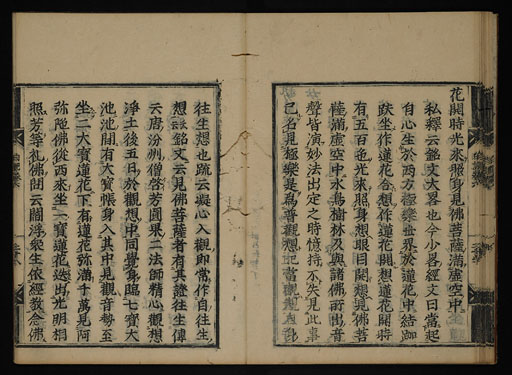 花開時光來照身見佛菩薩滿虛空中
私釋云銘文大畧也今少畧經文曰當起
自心生於西方極樂世界於蓮花中結跏
趺坐作蓮花合想作蓮花開想蓮花開時
有五百色光來照身想眼目開想見佛菩
薩滿虛空中水鳥樹林及與諸佛所出音
聲皆演妙法出定之時憶持不失見此事
已名見極樂是爲普觀想
往生想也疏云凝心入觀即當作自往生
想銘文云見佛菩薩者有其證往生傳
云唐汾州僧啓芳圓果二法師精心觀想
淨土後五月於觀想中同覺身臨七寶大
池池開有大寶帳身入其中見觀音勢至
坐二大寶蓮花下有蓮花弥滿千萬見阿
弥陀佛從西來坐一寶蓮花迭出光明相
照芳等礼佛問云閻浮衆生依經教念佛